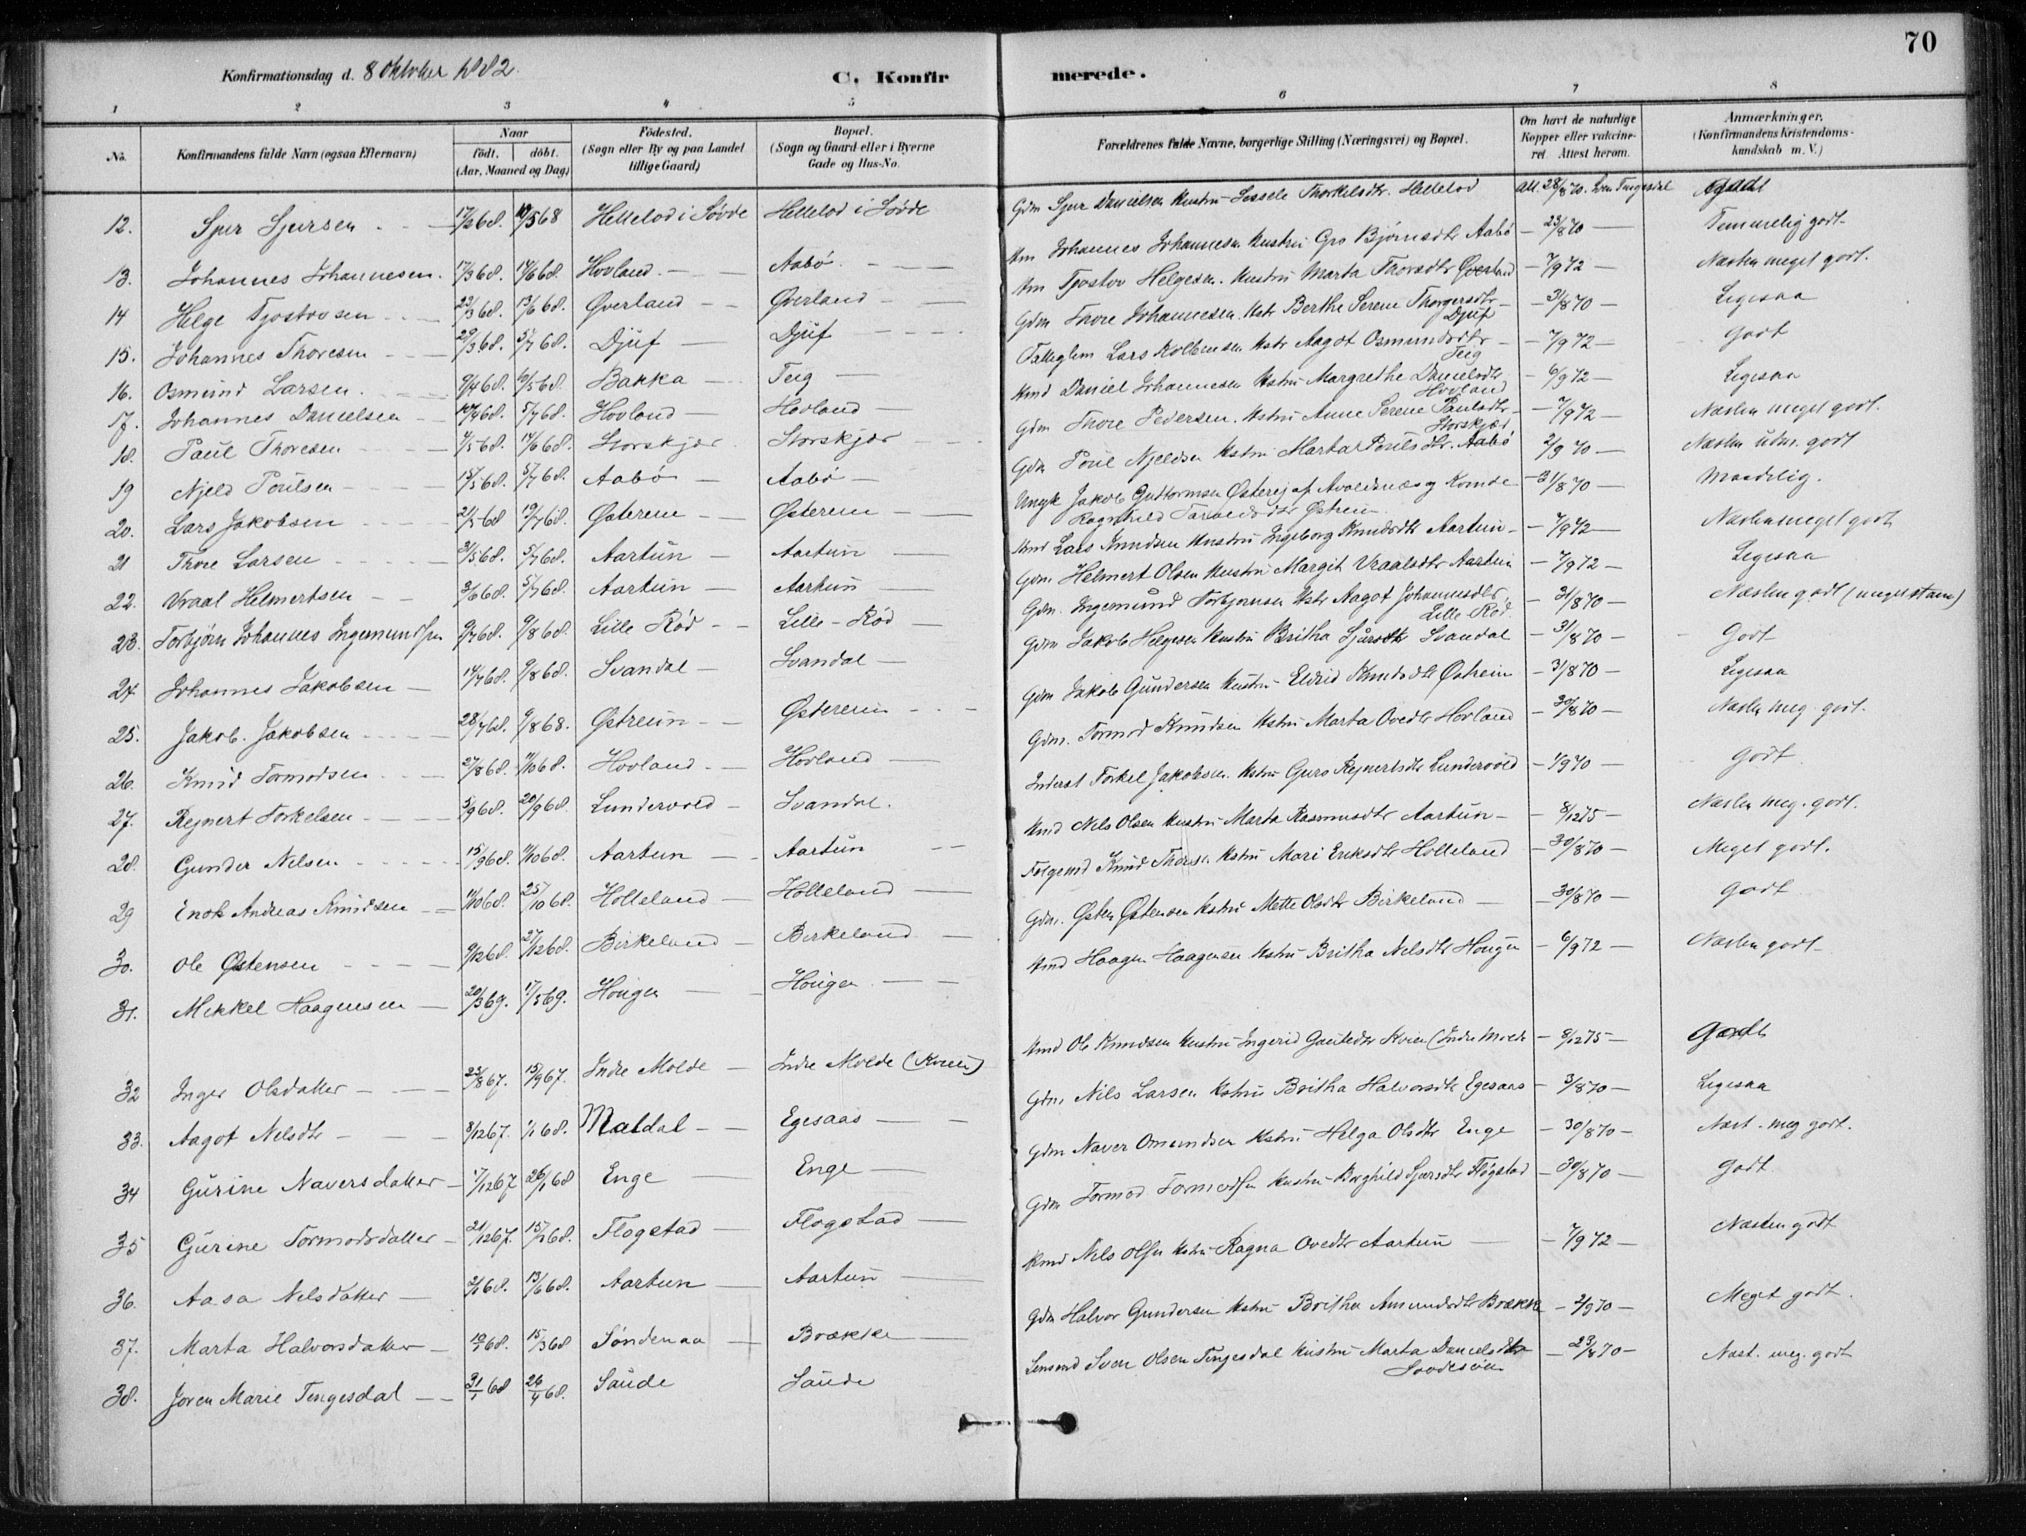 70
Konfirmationsdag d. 8 Oktober 1882.
C. Konfirmerede.
1 2 3 4 5 6 7 8
No. Konfirmandens fulde Navn (ogsaa Efternavn) Naar födt, döbt. (Aar, Maaned og Dag) Födested. (Sogn eller By og paa Landet tillige Gaard) Bopæl. (Sogn og Gaard eller i Byerne Gade og Hus-No. Forældrenes fulde Navne, borgerlige Stilling (Næringsvei) og Bopæl. Om havt de naturlige Kopper eller vakcineret. Attest herom. Anmærkninger. (Konfirmandens Kristendomskundskab m. V.)
12. Sjur Sjursen 17/2 68. 10/5 68 Hellelod i Søvde Hellelod i Søvde Gdm Sjur Danielsen Hustru Sessele Thorkelsdtr. Hellelod Att. 28/8 70. Sven Tengesdal Godt
13. Johannes Johannesen. 17/3 68. 14/6 68. Hovland. Aabø Km Johannes Johannesen Hustru Gro Bjørnsdtr Aabø 23/8 70 Temmelig godt
14 Helge Tjostovsen 23/3 68. 13/6 68. Øverland Øverland Km Tjostov Helgesen. Hustru Marta Thorsdtr Øverland 7/9 72 Næsten meget godt.
15. Johannes Thoresen 29/3 68. 5/7 68. Djuf Djuf Gdm Thore Johannesen. Hstr Berthe Serene Thorgersdtr Djuf 31/8 70 Ligesaa
16. Osmund Larsen 9/4 68. 10/5 68. Bakka Teig Lars Kolbensen Hstr Aagot Osmundsdtr Teig 7/9 72 Godt
17. Johannes Danielsen 10/4 68. 5/7 68. Hovland Hovland Kmd Daniel Johannesen Hstru Margrethe Danielsdtr Hovland 6/9 72 Ligesaa
18. Paul Thoresen 1/5 68. 14/6 68. Storskjær Storskjær Gdm Thore Pedersen. Hstru Anne Serene Paulsdtr Storskjær 7/9 72 Næsten meget godt.
19 Njeld Poulsen 15/5 68. 5/7 68. Aabø Aabø Gdm Poul Njeldsen Hstru Marta Poulsdtr. Aabø 2/9 70 Næsten udm. godt
20. Lars Jakobsen 21/5 68 12/7 68. Østerem Østerem Ungk Jakob Guttormsen Østerej af Avaldsnæs og Kvinde Ragnhild Østrem 31/8 70 Maadelig.
21 Thore Larsen 31/5 68. 5/7 68. Aartun Aartun Kmd Lars Knudsen Hustru Ingeborg Knudsdtr Aartun 7/9 72 Næsten meget godt
22. Vraal Helmertsen 3/6 68. 5/7 68. Aartun Aartun Gdm. Helmert Olsen Hustru Margit Vraalsdtr Aartun 7/9 72 Ligesaa
23. Torbjørn Johannes Ingemundsen 9/7 68. 9/8 68. Lille Rød Lille-Rød Gdm. Ingemund Torbjørnsen Hstr Aagot Johannesdtr Lille Rød 31/8 70 Næsten godt (meget stam)
24. Johannes Jakobsen 14/7 68. 9/8 68. Svandal Svandal Gdm Jakob Helgesen Hustru Britha Sjursdtr Svandal 31/8 70 Godt
25. Jakob Jakobsen 28/7 68. 9/8 68. Østreim Østerem Gdm Jakob Gundersen Hustru Eldrid Knudsdtr Østrem 31/8 70 Ligesaa
26. Knud Tormodsen 27/8 68. 11/10 68. Hovland Hovland Gdm. Tormod Knudsen Hstru Marta Ovedtr Hovland 30/8 70 Næsten meg. godt.
27. Rejnert Torkelsen 5/9 68. 20/9 68. Lundervold Svandal. Inderst Torkel Jakobsen. Hstru Guro Rejnertsdtr Lundervold 1/9 70 Godt
28. Gunder Nilsen 15/9 68. 11/10 68. Aartun Aartun Kmd Nils Olsen Hustru Marta Rasmusdtr Aartun 8/12 75 Næsten meg. godt.
29 Enok Andreas Knudsen 11/10 68. 25/10 68. Holleland Holleland Folgemd Knud Thores. Hstru Mari Eriksdtr Holleland 30/8 70 Meget godt.
30. Ole Østensen 9/12 68. 27/12 68. Birkeland Birkeland Gdm. Østen Østensen Hstru Mette Olsdtr Birkeland 30/8 70 Godt
31. Mikkel Haagensen 20/3 69. 17/5 69. Hougen Hougen Kmd Haagen Haagensen Hstru Britha Nilsdtr Hougen 6/9 72 Næsten godt
32 Inger Olsdatter 23/8 67. 15/9 67. Indre Molde Indre Molde (Kvien) Kmd Ole Knudsen Hustru Ingerid Gautedtr Kvien (Indre Molde 8/12 75 Godt
33. Aagot Nilsdtr 8/12 67. 1/1 68. Maldal Egesaas Gdm. Nils Larsen Hstru Britha Halvorsdtr Egesaas 31/8 70 Ligesaa
34 Gurine Naversdatter 17/12 67 26/1 68 Enge Enge Gdm Naver Omundsen Hstru Helga Olsdtr Enge 30/8 70 Næst. meg godt.
35 Gurine Tormodsdatter 21/12 67. 15/ 68. Flogstad Flogstad Gdm Tormod Tormodsen Hustru Borghild Sjursdtr Fløgstad 30/8 70 Godt
36. Aasa Nilsdatter 2/1 68. 13/ 68. Aartun Aartun Kmd Nils Olsen Hstru Ragna Ovedtr Aartun 7/9 72 Næsten godt
37. Marta Halvorsdatter 19/ 68. 15/3 68 Søndenaa Brække Gdm Halvor Gundersen Hstru Britha Amundsdtr Brække 2/9 70 Meget godt.
38. Joren Marie Tengesdal 31/1 68 26/4 68. Saude Saude Lensmd Sven Olsen Tengesdal Hustru Marta Danielsdtr 23/8 70 Næst. meg. godt